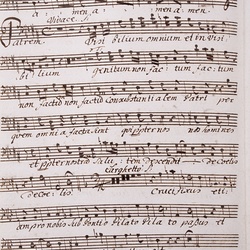 a men a men a men.
Vivace
Patrem. Visi bilium omnium et in visi
bi lium genitum non fac: tum fac: tum
non factū non factū consubstanti alem Patri per
quem omnia facta sunt qui ppter nos homines
et ppter nostrā Salu: tem descendit de Coelis
Larghetto
de Coe: lis. Cruci fixus eti:
am pro nobis sub Pontio Pilato Pila to passus et